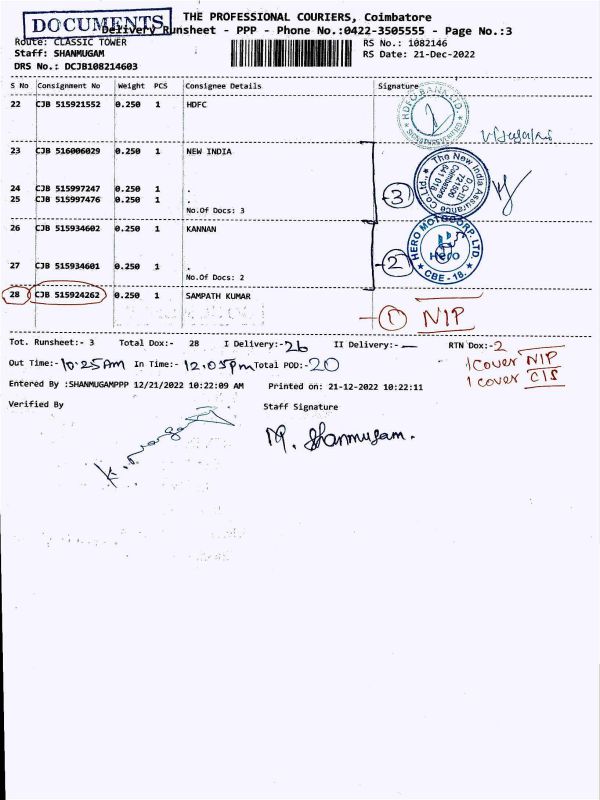 DOCUMENTS
THE PROFESSIONAL COURIERS, Coimbatore
Delivery Runsheet - PPP - Phone No.:0422-3505555 - Page No.:3
Route: CLASSIC TOWER RS No.: 1082146
Staff: SHANMUGAM RS Date: 21-Dec-2022
DRS No.: DCJB108214603
S No Consignment No Weight PCS Consignee Details Signature
22 CJB 515921552 0.250 1 HDFC
HDFC BANK LTD
SIGNATURE VERIFIED
23 CJB 516006029 0.250 1 NEW INDIA
The New India Assurance Co. Ltd.
D.O-III
721500
Coimbatore
641 018
24 CJB 515997247 0.250 1 .
25 CJB 515997476 0.250 1 .
No.Of Docs: 3
3
26 CJB 515934602 0.250 1 KANNAN
HERO MOTOCORP. LTD.
Hero
CBE - 18.
27 CJB 515934601 0.250 1 .
No.Of Docs: 2
2
28 CJB 515924262 0.250 1 SAMPATH KUMAR
1 NIP
Tot. Runsheet:- 3 Total Dox:- 28 I Delivery:-26 II Delivery:- — RTN Dox:-2
1 Cover NIP
1 cover CIS
Out Time:-10:25Am In Time:- 12.05pm Total POD:-20
Entered By :SHANMUGAMPPP 12/21/2022 10:22:09 AM Printed on: 21-12-2022 10:22:11
Verified By Staff Signature
M. Shanmugam.